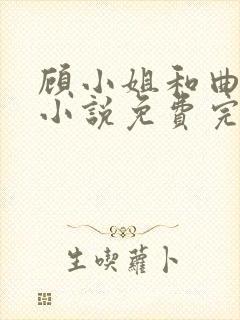 顾小姐和曲
小说免费完
生喫蘿卜